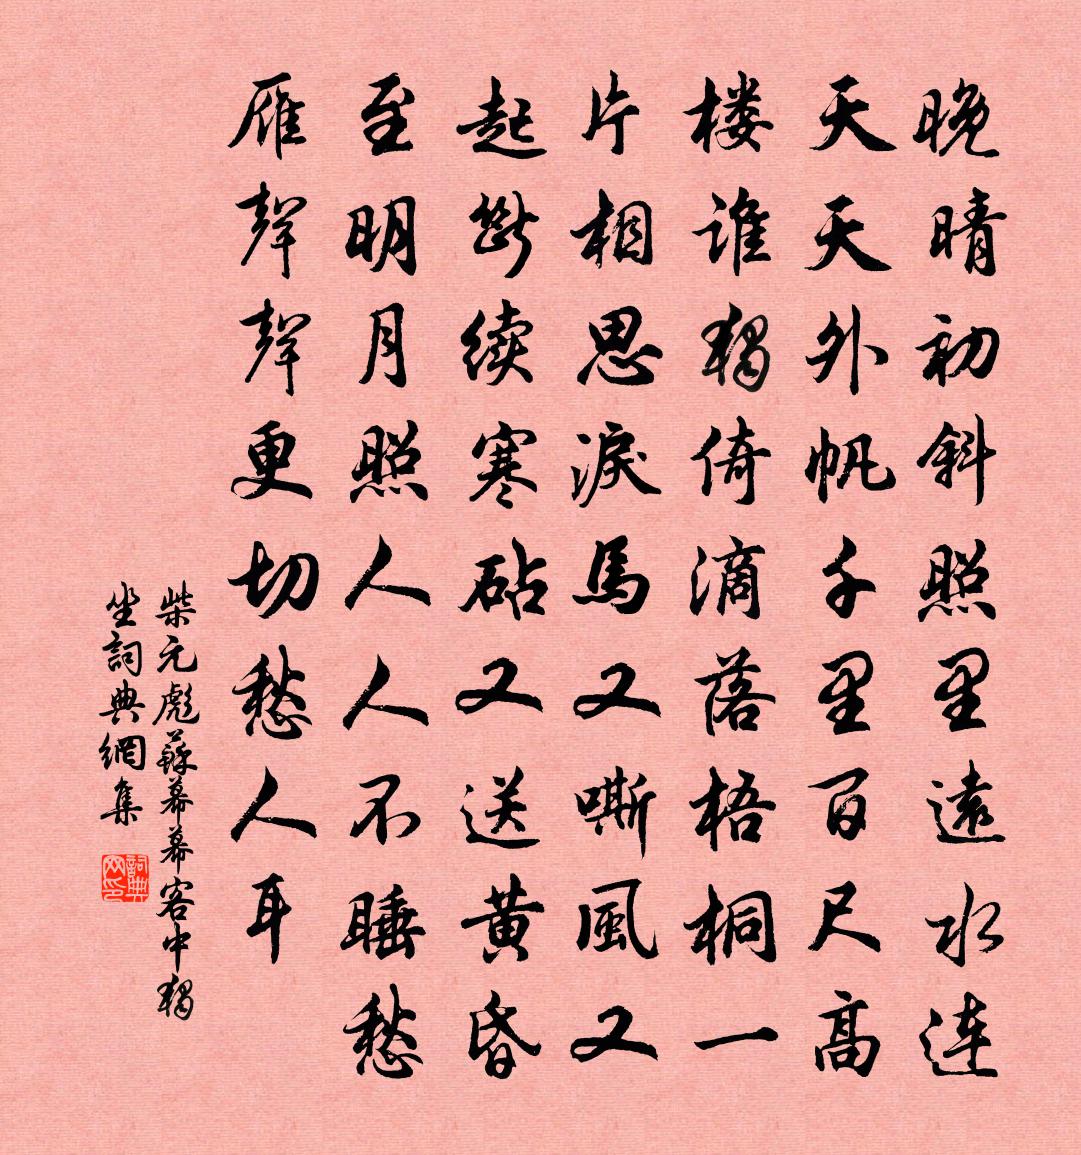 晚晴初斜照里遠水连
天天外帆千里百尺高
楼谁獨倚滴落梧桐一
片相思淚馬又嘶風又
起斷续寒砧又送黄昏
至明月照人人不睡愁
雁聲聲更切愁人耳
柴元彪蘇幕幕客中獨
坐詞典網集
詞典网印